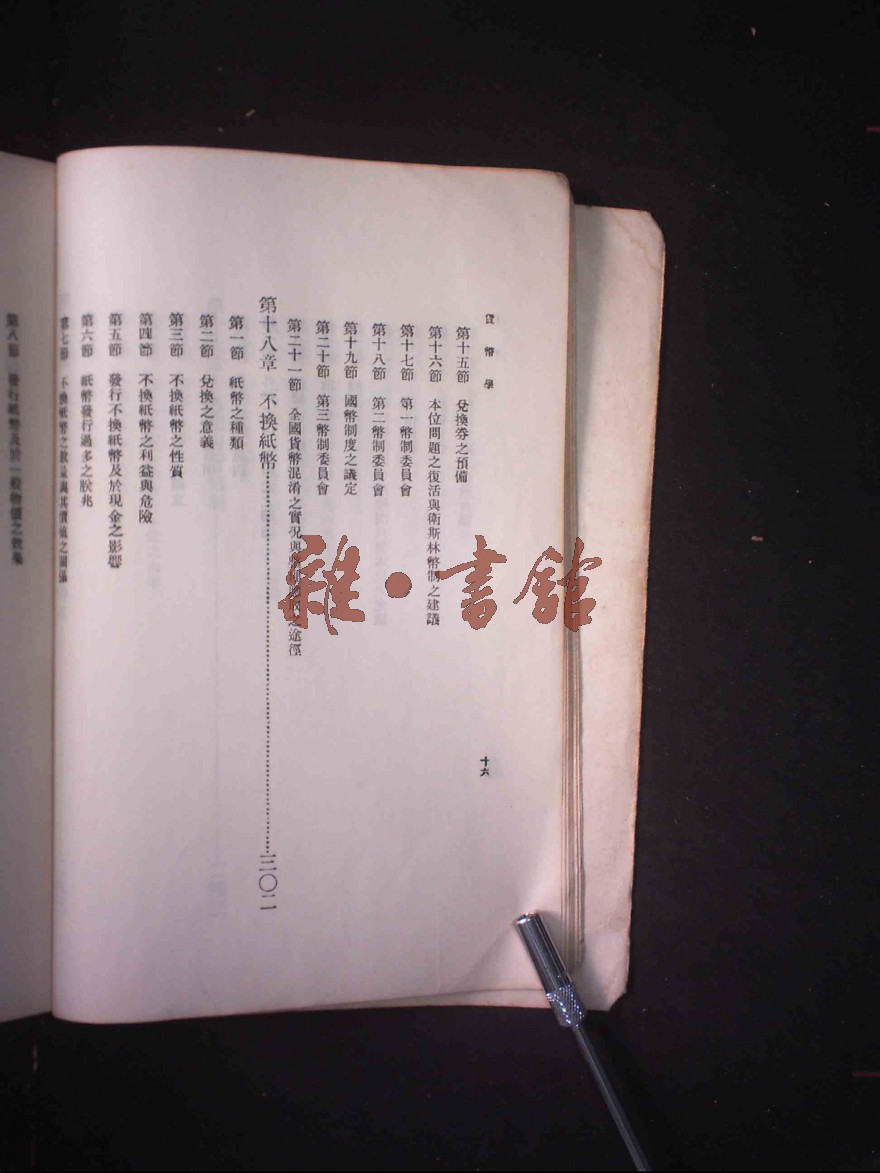 貨幣學
十六
第十五節 兌換券之預備
第十六節 本位問題之復活與衛斯林幣制之建議
第十七節 第一幣制委員會
第十八節 第二幣制委員會
第十九節 國幣制度之議定
第二十節 第三幣制委員會
第二十一節 全國貨幣混淆之實況與之途徑
第十八章 不換紙幣……三〇二
第一節 紙幣之種類
第二節 兌換之意義
第三節 不換紙幣之性質
第四節 不換紙幣之利益與危險
第五節 發行不換紙幣及於現金之影響
第六節 紙幣發行過多之朕兆
第七節 不換紙幣之數量與其價值之關係
第八節 發行紙幣及於一般物價之效果
雜·書館